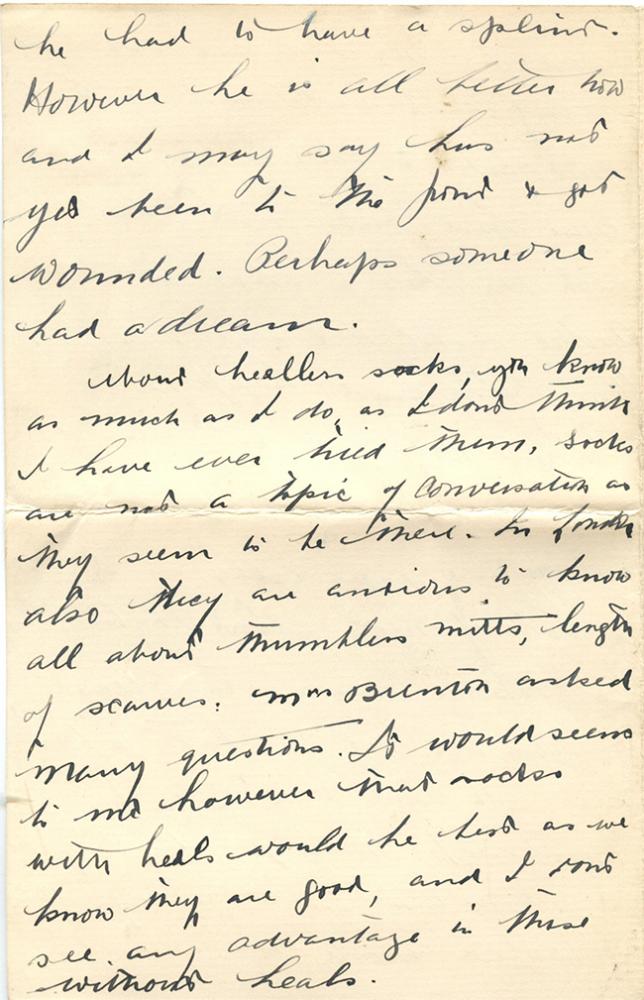 he had to have a splint.
However he is all better now
and I may say has not
yet been to the front & got
wounded. Perhaps someone
had a dream.
About heelless socks, you know
as much as I do, as I dont think
I have ever tried them, socks
are not a topic of conversation as
they seem to be there. In London
also they are anxious to know
all about thumbless mitts, length
of scarves. Mrs Brenton asked
many questions. It would seem
to me however that socks
with heals would be best as we
know they are good, and I dont
see any advantage in those
without heals.